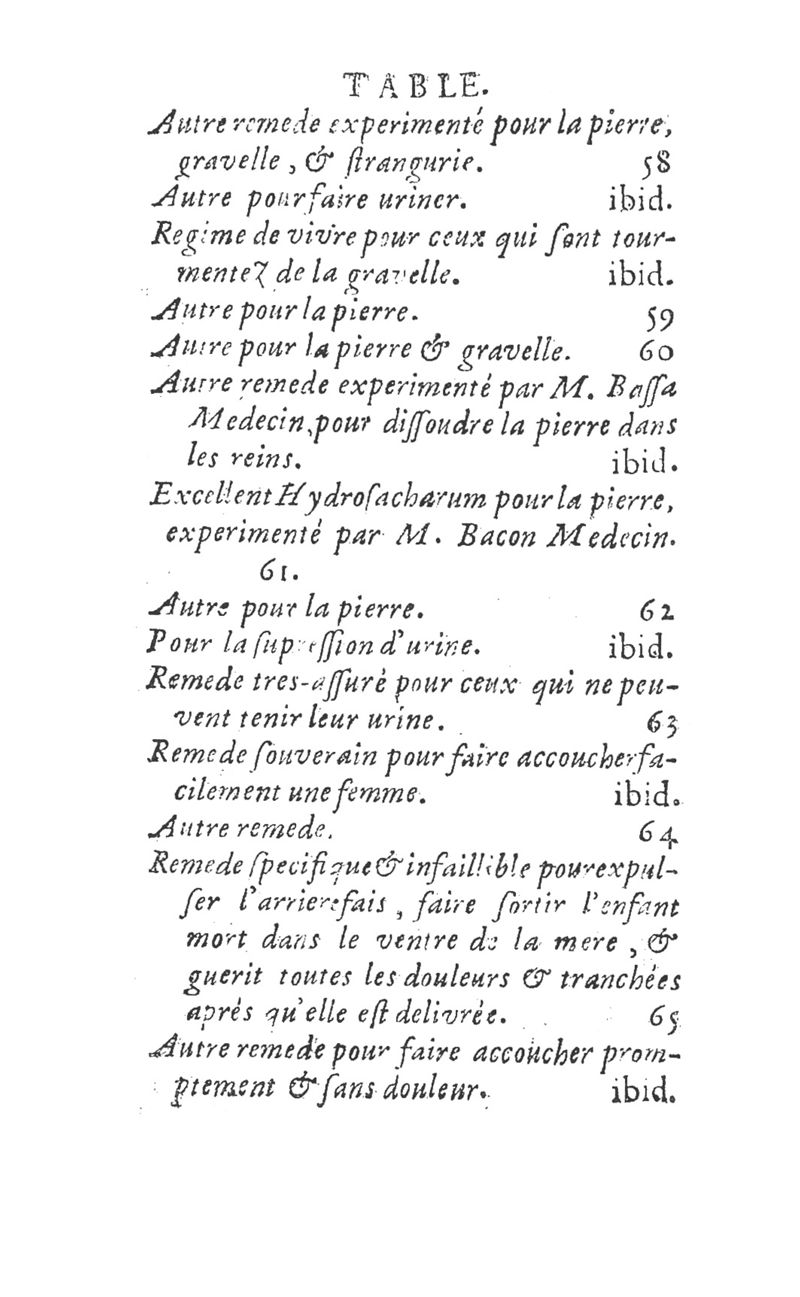 TABLE.
Autre remede experimenté pour la pierre,
gravelle, & ſtrangurie. 58
Autre pour faire uriner. ibid.
Regime de vivre pour ceux qui ſont tour-
mentez de la gravelle. ibid.
Autre pour la pierre. 59
Autre pour la pierre & gravelle. 60
Autre remede experimenté par M. Baſſa
Medecin, pour diſſoudre la pierre dans
les reins. ibid.
Excellent Hydroſacharum pour la pierre,
experimenté par M. Bacon Medecin.
61.
Autre pour la pierre. 62
Pour la ſupreſſion d'urine. ibid.
Remede tres-aſſuré pour ceux qui ne peu-
vent tenir leur urine. 63
Remede ſouverain pour faire accoucher fa-
cilement une femme. ibid.
Autre remede. 64
Remede ſpecifique & infaillible pour expul-
ſer l'arrierefais, faire ſortir l'enfant
mort dans le ventre de la mere, &
guerit toutes les douleurs & tranchées
aprés qu'elle eſt delivrée. 65
Autre remede pour faire accoucher prom-
ptement & ſans douleur. ibid.